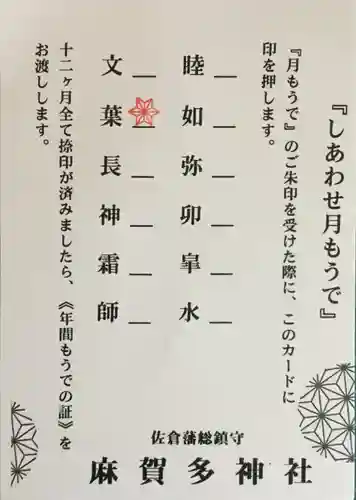 『しあわせ月もうで』
『月もうで』のご朱印を受けた際に、このカードに
印を押します。
睦＿
如＿
弥＿
卯＿
皐＿
水＿
文＿
葉＿
長＿
神＿
霜＿
師＿
十二ヶ月全て捺印が済みましたら、《年間もうでの証》を
お渡しします。
佐倉藩総鎮守
麻賀多神社